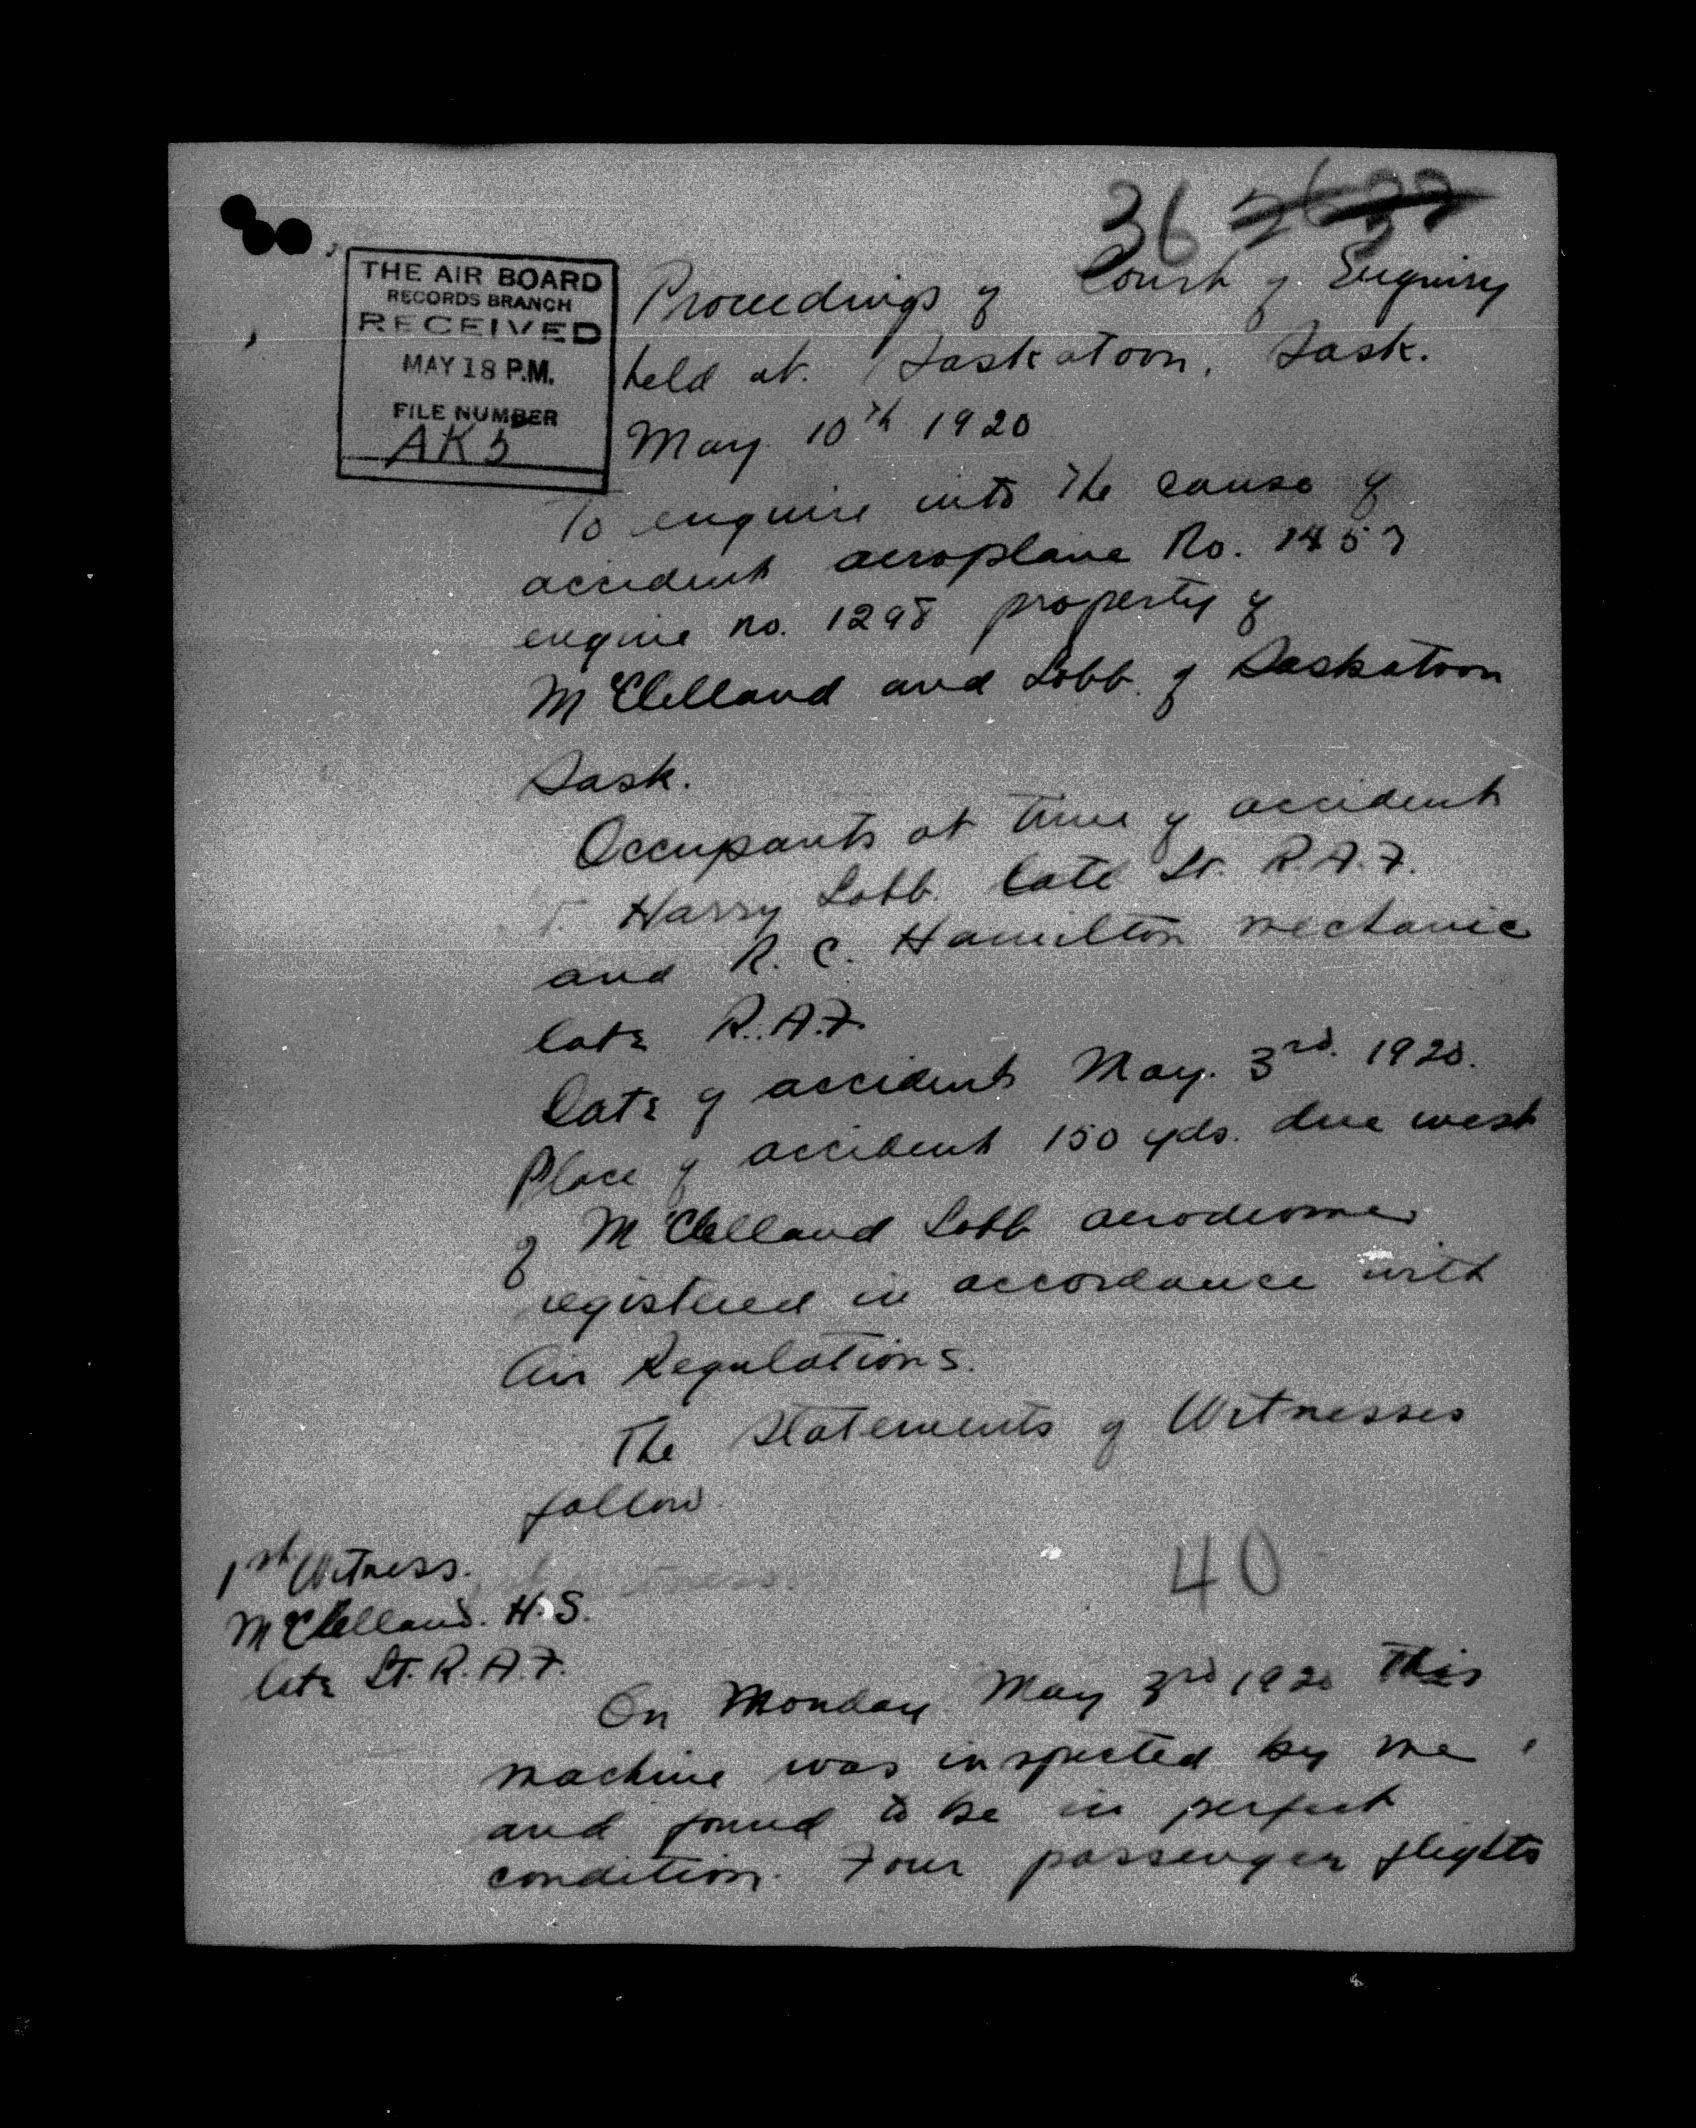 36
THE AIR BOARD
RECORDS BRANCH
RECEIVED
MAY 18 P.M.
FILE NUMBER
AK5
Proceedings of Court of Enquiry
held at Saskatoon, Sask.
May 10th 1920
To enquire into the cause of
accident aeroplane No.
engine no. 1298 property of
McClelland and Lobb of Saskatoon
Sask.
Occupants at time of accident
Harry Lobb late Lt. R.A.F.
and R. C. Hamilton mechanic
late R.A.F.
Date of accident May. 3rd. 1920.
Place of accident 150 yds. due west
of McClelland Lobb aerodrome
registered in accordance with
Air Regulations.
The Statements of Witnesses
follow.
40
1st Witness.
McClelland. H.S.
late Lt. R.A.F.
On Monday May 3rd 1920 This
machine was inspected by me
and found to be in perfect
condition. Four passenger flights